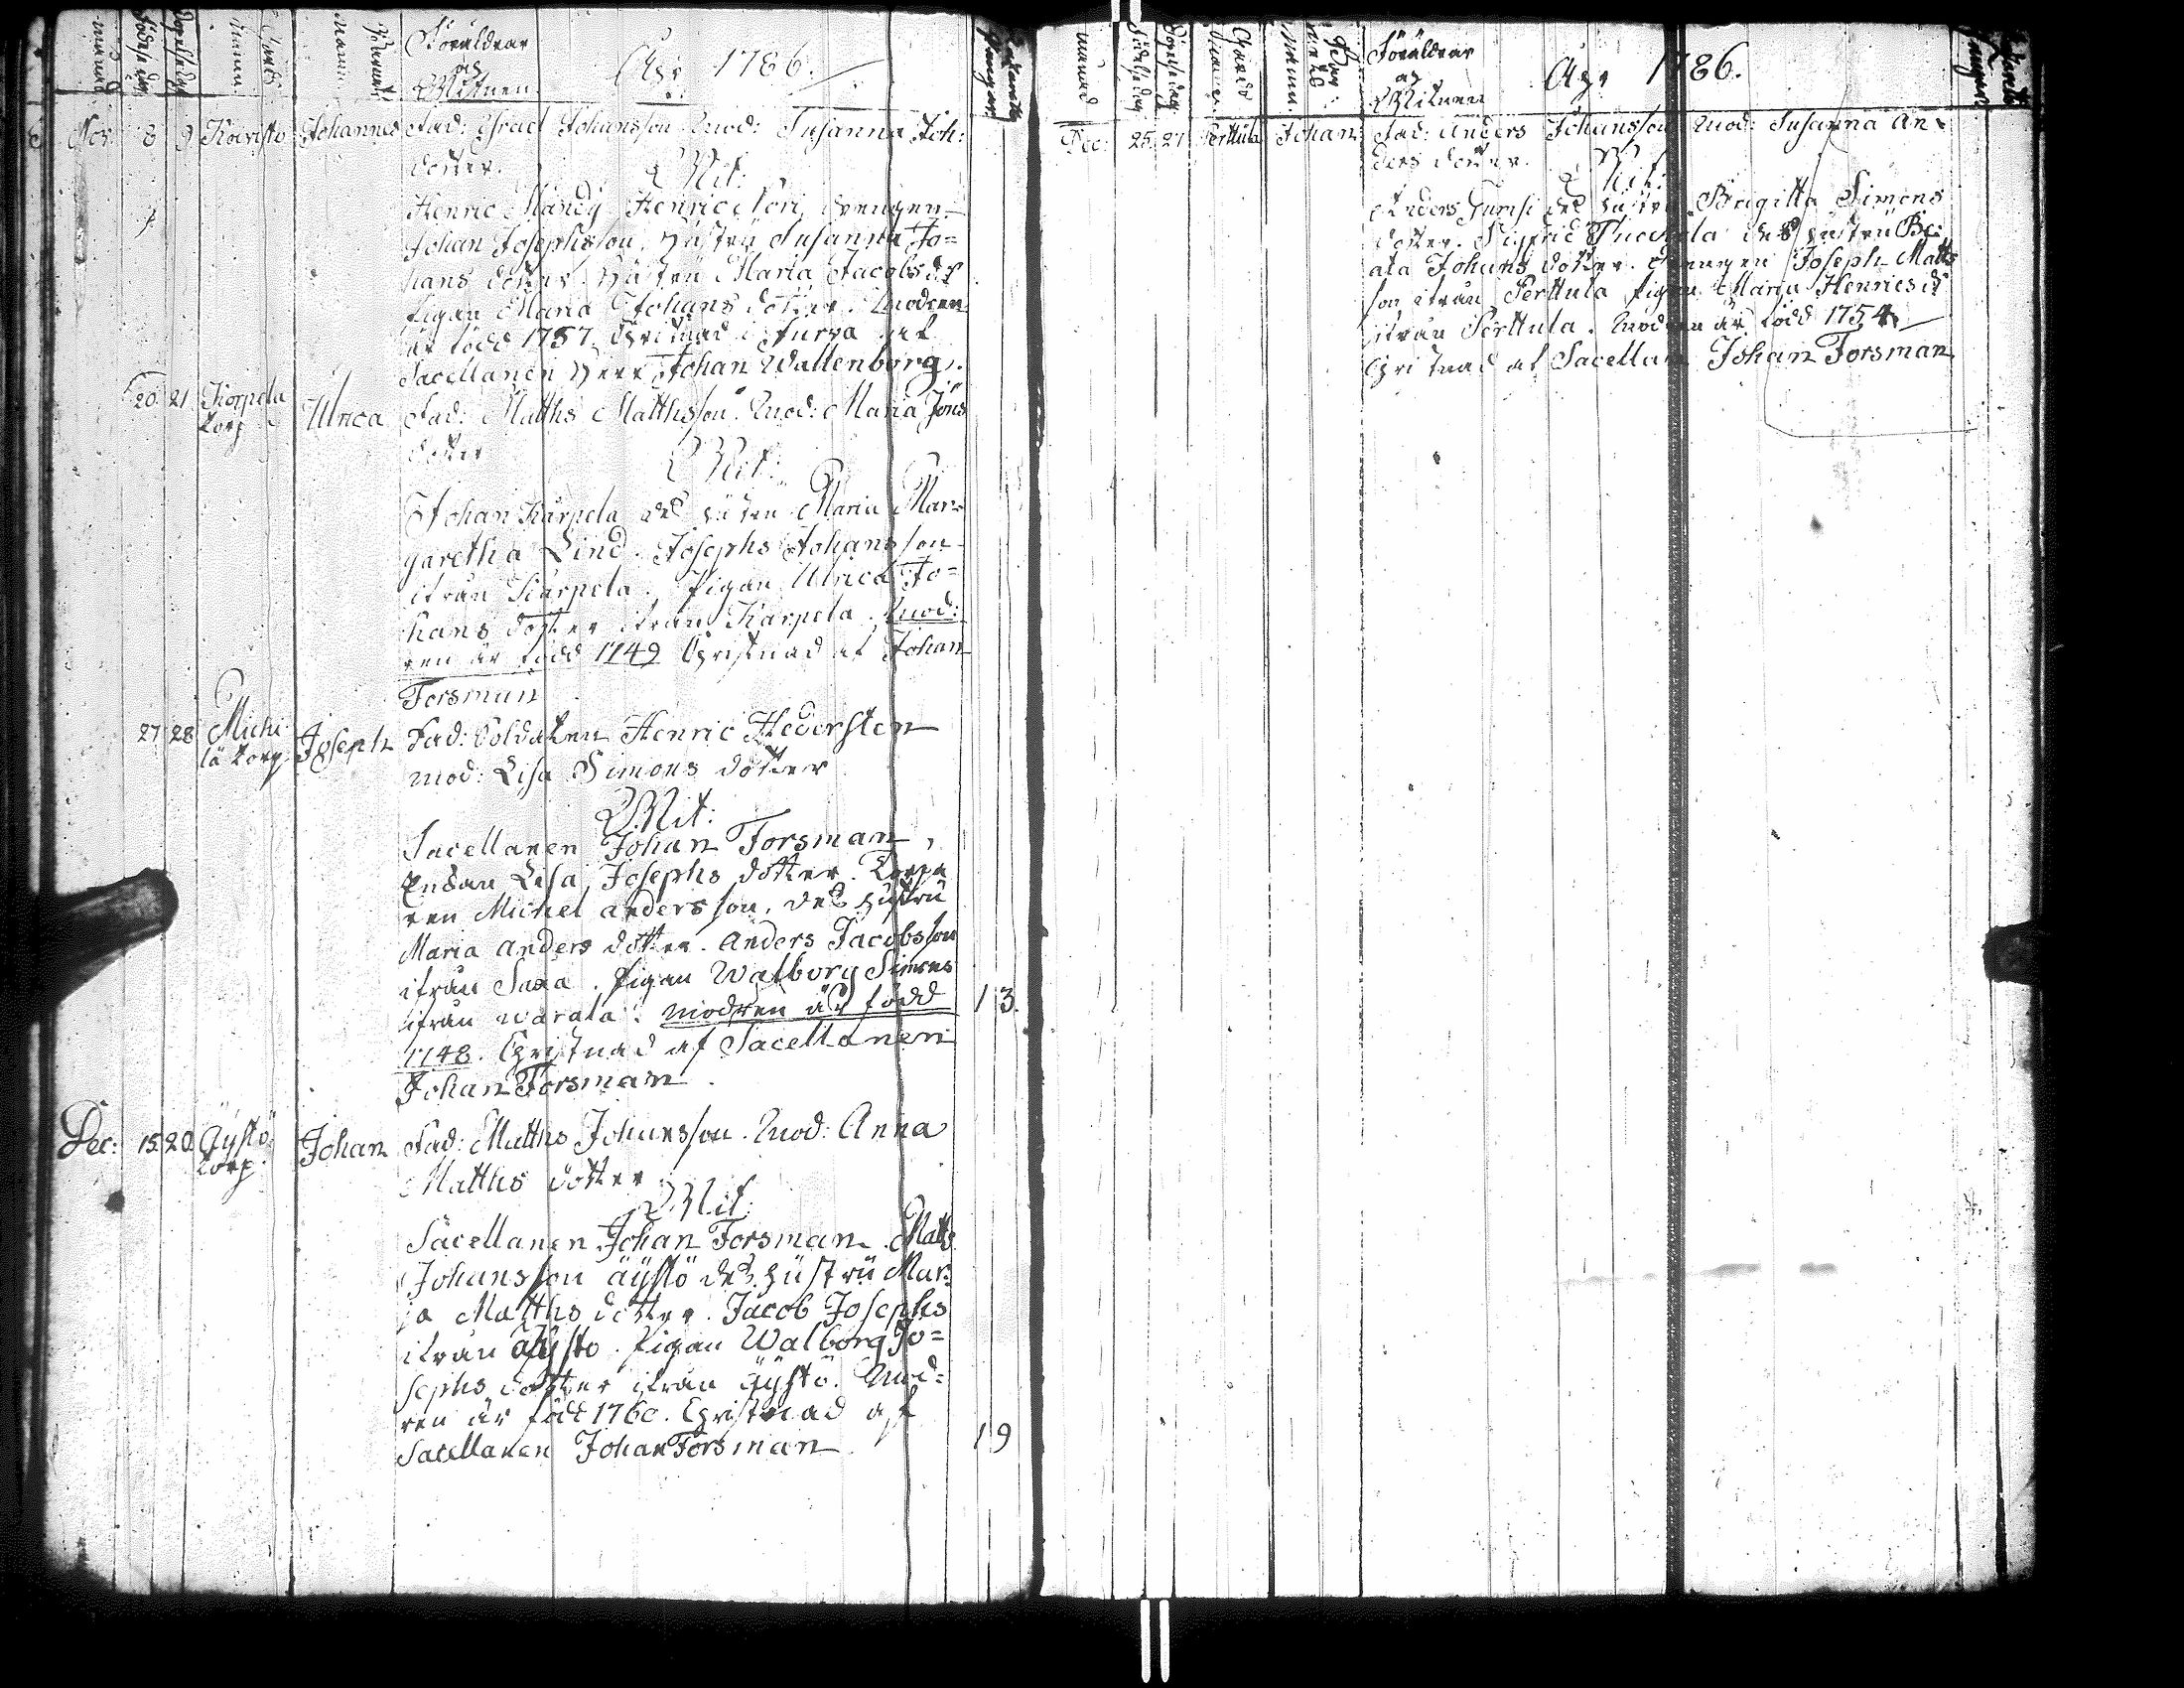 Föräldrar
och
Witnen. Åhr 1786.
Nov. 8 9 Koivisto Johannes Fad: Israel Johansson Mod: Susanna Joh:
dotter. Wit:
Henric Mändy Henric Nori drengen
Johan Josephsson. Hustru Susanna Jo=
hans dotter Hustru Maria Jacobs dr
Pigan Maria Johans dotter. Modren
är född 1757. Christnad i Furva af
Sacellanen Herr Johan Wallenborg.
20 21 Korpela
torp Ulrica Fad: Matths Matthsson. Mod: Maria Jöns
dotter
Wit:
Johan Karpela des hustru Maria Mar=
garetha Lind. Josephs Johansson
ifrån Karpela. Pigan Ulrica Jo=
hans dotter ifrån Karpela. Mod:
ren är född 1749 Christnad af Johan
Forsman
27 28 Micki
lä torp. Joseph Fad: Soldaten Henric Hedersten
mod: Lisa Simons dotter
Wit:
Sacellanen Johan Forsman,
Enkan Lisa Josephs dotter. Torpa
ren Michel andersson, des hustru
Maria anders dotter. Anders Jacobsson
ifrån Saxa. Pigan Walborg Simons
ifrån warala. modren är född 13.
1748. Christnad af Sacellanen
Johan Forsman.
Dec: 15. 20. Äÿstö
torp. Johan Fad: Matths Johansson. Mod: Anna
Matths dotter
Wit:
Sacellanen Johan Forsman. Matts
Johansson äÿstö des hustru Mar:
ia Matths dotter. Jacob Josephs
ifrån äÿsto. Pigan Walborg Jo=
sephs dotter ifrån äÿstö. Mod:
ren är född 1760. Christnad af
Sacellanen Johan Forsman. 19
Föräldrar
och
Witnen Åhr 1786.
Dec: 25. 27 Perttula Johan Fad: Anders Johansson Mod: Susanna An=
ders dotter.
Wit:
Anders des hustru Brigitta Simons
dotter. Sigfrid des hustru Be:
ata Johans dotter. drengen Joseph Matts
son ifrån Perttula pigan Maria Henrics dr
ifrån Perttula. Modren är född 1754
Christnad af Sacellan Johan Forsman